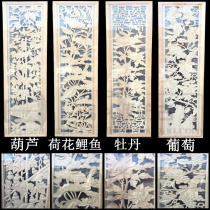 葫芦 荷花鲤鱼 牡丹 葡萄